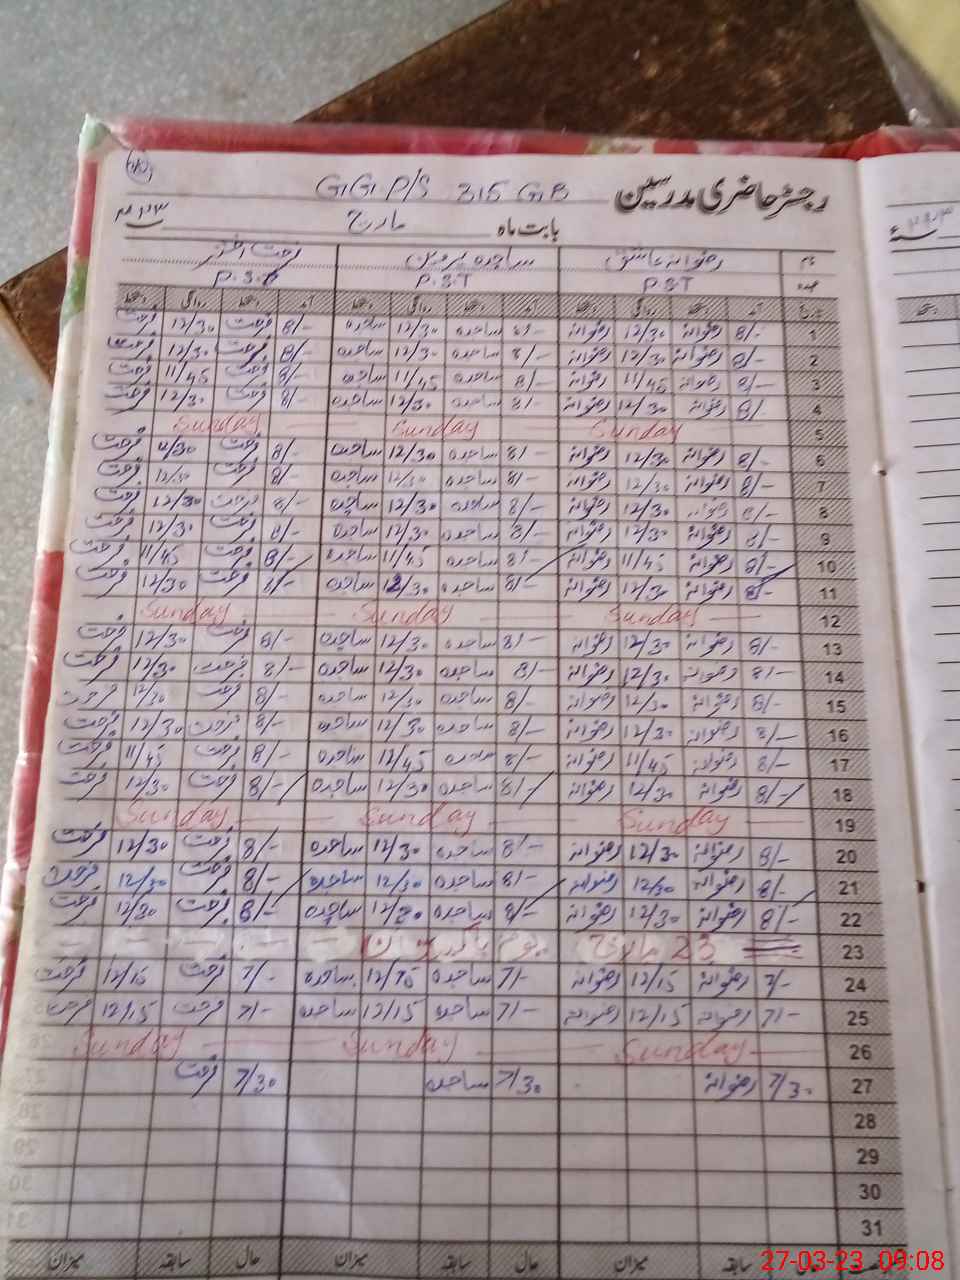 GGP/S 315 GB رجسٹر حاضری مدرسین
بابت ماہ مارچ
نام رضوانہ عاشق ساجدہ پروین فرحت
عہدہ P.S.T P.S.T P.S.T
تاریخ آمد دستخط روانگی دستخط آمد دستخط روانگی دستخط آمد دستخط روانگی دستخط
1 8/- رضوانہ 12/30 رضوانہ 8/- ساجدہ 12/30 ساجدہ 8/- فرحت 12/30 فرحت
2 8/- رضوانہ 12/30 رضوانہ 8/- ساجدہ 12/30 ساجدہ 8/- فرحت 12/30 فرحت
3 8/- رضوانہ 11/45 رضوانہ 8/- ساجدہ 11/45 ساجدہ 8/- فرحت 11/45 فرحت
4 8/- رضوانہ 12/30 رضوانہ 8/- ساجدہ 12/30 ساجدہ 8/- فرحت 12/30 فرحت
5 Sunday Sunday Sunday
6 8/- رضوانہ 12/30 رضوانہ 8/- ساجدہ 12/30 ساجدہ 8/- فرحت 12/30 فرحت
7 8/- رضوانہ 12/30 رضوانہ 8/- ساجدہ 12/30 ساجدہ 8/- فرحت 12/30 فرحت
8 8/- رضوانہ 12/30 رضوانہ 8/- ساجدہ 12/30 ساجدہ 8/- فرحت 12/30 فرحت
9 8/- رضوانہ 12/30 رضوانہ 8/- ساجدہ 12/30 ساجدہ 8/- فرحت 12/30 فرحت
10 8/- رضوانہ 11/45 رضوانہ 8/- ساجدہ 11/45 ساجدہ 8/- فرحت 11/45 فرحت
11 8/- رضوانہ 12/30 رضوانہ 8/- ساجدہ 12/30 ساجدہ 8/- فرحت 12/30 فرحت
12 Sunday Sunday Sunday
13 8/- رضوانہ 12/30 رضوانہ 8/- ساجدہ 12/30 ساجدہ 8/- فرحت 12/30 فرحت
14 8/- رضوانہ 12/30 رضوانہ 8/- ساجدہ 12/30 ساجدہ 8/- فرحت 12/30 فرحت
15 8/- رضوانہ 12/30 رضوانہ 8/- ساجدہ 12/30 ساجدہ 8/- فرحت 12/30 فرحت
16 8/- رضوانہ 12/30 رضوانہ 8/- ساجدہ 12/30 ساجدہ 8/- فرحت 12/30 فرحت
17 8/- رضوانہ 11/45 رضوانہ 8/- ساجدہ 12/45 ساجدہ 8/- فرحت 11/45 فرحت
18 8/- رضوانہ 12/30 رضوانہ 8/- ساجدہ 12/30 ساجدہ 8/- فرحت 12/30 فرحت
19 Sunday Sunday Sunday
20 8/- رضوانہ 12/30 رضوانہ 8/- ساجدہ 12/30 ساجدہ 8/- فرحت 12/30 فرحت
21 8/- رضوانہ 12/30 رضوانہ 8/- ساجدہ 12/30 ساجدہ 8/- فرحت 12/30 فرحت
22 8/- رضوانہ 12/30 رضوانہ 8/- ساجدہ 12/30 ساجدہ 8/- فرحت 12/30 فرحت
23 23 مارچ یوم پاکستان
24 7/- رضوانہ 12/15 رضوانہ 7/- ساجدہ 12/15 ساجدہ 7/- فرحت 12/15 فرحت
25 7/- رضوانہ 12/15 رضوانہ 7/- ساجدہ 12/15 ساجدہ 7/- فرحت 12/15 فرحت
26 Sunday Sunday Sunday
27 7/30 رضوانہ 7/30 ساجدہ 7/30 فرحت
28
29
30
31
سابقہ میزان حال سابقہ میزان حال سابقہ میزان
27-03-23 09:08